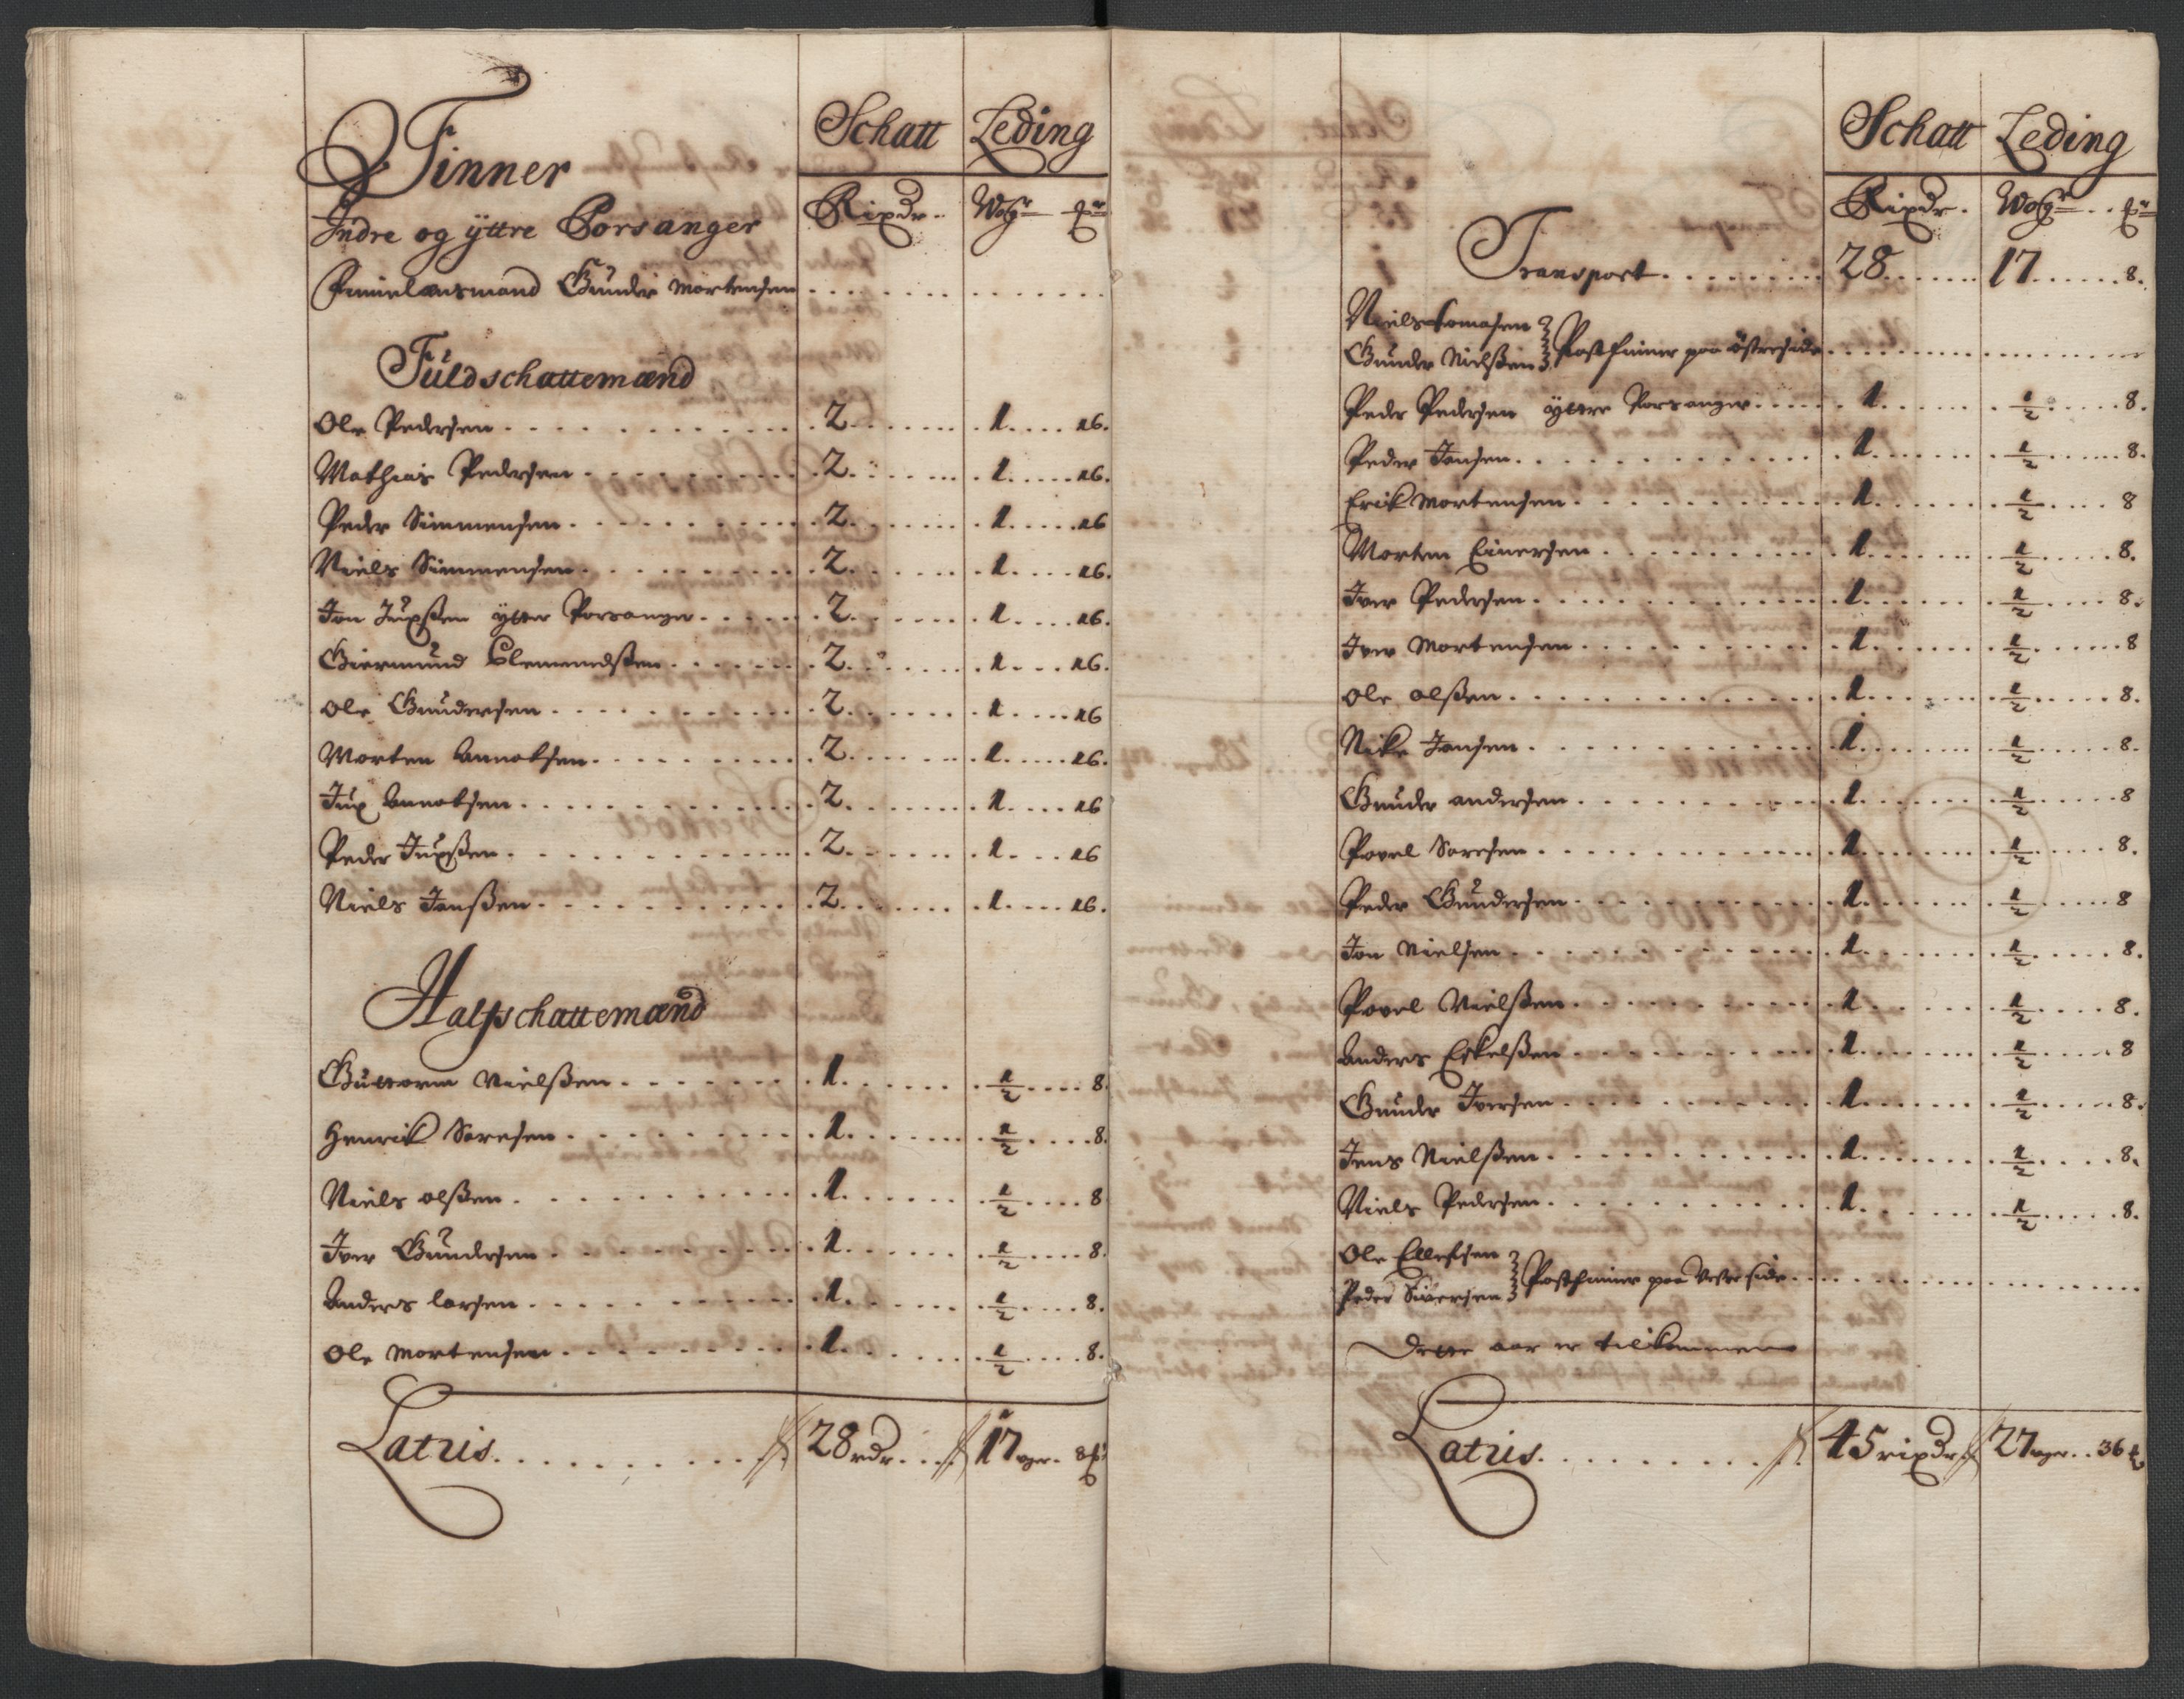 Schatt Leding
Finner
Indre og ÿttre Porsanger Rixdr. Wogr
Finnelensmand Gunder Mortensen
Fuldschattemænd
Ole Pedersen 2 1 16.
Mathias Pedersen 2 1 16.
Peder Simmensen 2 1 16
Niels Simmensen 2 1 16.
Jon Jupssen ÿtter Porsanger 2 1 16.
Giermund Clemendssen 2 1 16.
Ole Gundersen 2 1 16
Morten Annoksen 2 1 16.
Jup Annoksen 2 1 16
Peder Jupssen 2 1 16
Niels Jonssen 2 1 16.
Halfschattemænd
Guttorm Nielssen 1 1/2 8.
Henrik Saresen 1 1/2 8.
Niels olssen 1 1/2 8
Iver Gundersen 1 1/2 8.
Anders larsen 1 1/2 8.
Ole Mortensen 1 1/2 8.
Latus 28 rdr. 17 wger. 8
Schatt Leding
Rixdr. Wogr
Transport 28 17 8.
Niels Tomasen
Gunder Nielssen Postfinner paa östreside
Peder Pedersen ÿttre Porsanger 1 1/2 8.
Peder Jonsen 1 1/2 8.
Erik Mortensen 1 1/2 8
Morten Einersen 1 1/2 8.
Iver Pedersen 1 1/2 8.
Iver Mortensen 1 1/2 8
Ole olssen 1 1/2 8.
Nike Jonsen 1 1/2 8.
Gunder andersen 1 1/2 8
Povel Saresen 1 1/2 8.
Peder Gundersen 1 1/2 8
Jon Nielsen 1 1/2 8.
Povel Nielssen 1 1/2 8.
Anders Eskelssen 1 1/2 8
Gunder Iversen 1 1/2 8.
Jens Nielssen 1 1/2 8.
Niels Pedersen 1 1/2 8.
Ole Ellefsen
Peder Siversen Postfinner paa Vestre side
Dette aar er tilkommen
Latus 45 rixdr. 27 wger. 36